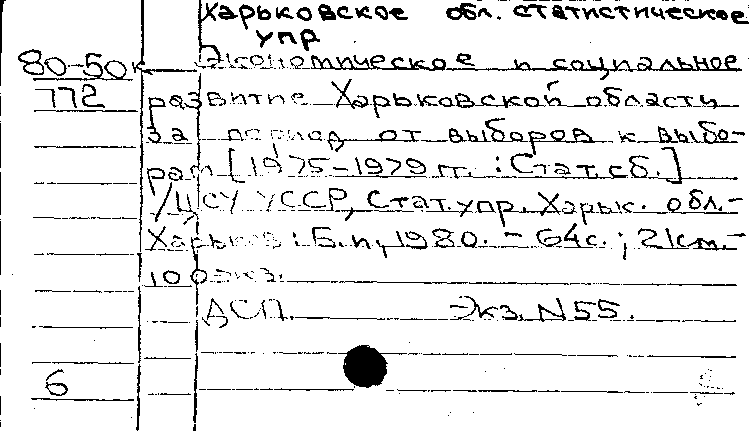 Харьковское обл. статистическое
упр
80-50к Экономическое и социальное
772 развитие Харьковской области
за период от выборов к выбо-
рам [1975-1979 гг. : Стат. сб.]
/ЦСУ УССР, Стат. упр. Харьк. обл.-
Харьков : Б.и, 1980. - 64с. ; 21см.-
100экз.
ДСП. Экз. N55.
6